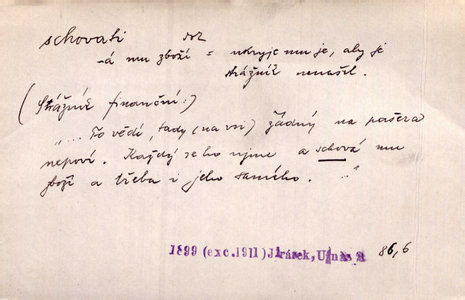 schovati dok
-á mu zboží = ukryje mu je, aby je
strážník nenašel.
(Strážník finanční:)
"... To vědí, tady (na vsi) žádný na pašera
nepoví. Každý se ho ujme a schová mu
zboží a třeba i jeho samého. ..."
1899 (exc.1911) Jirásek, U nás 86,6